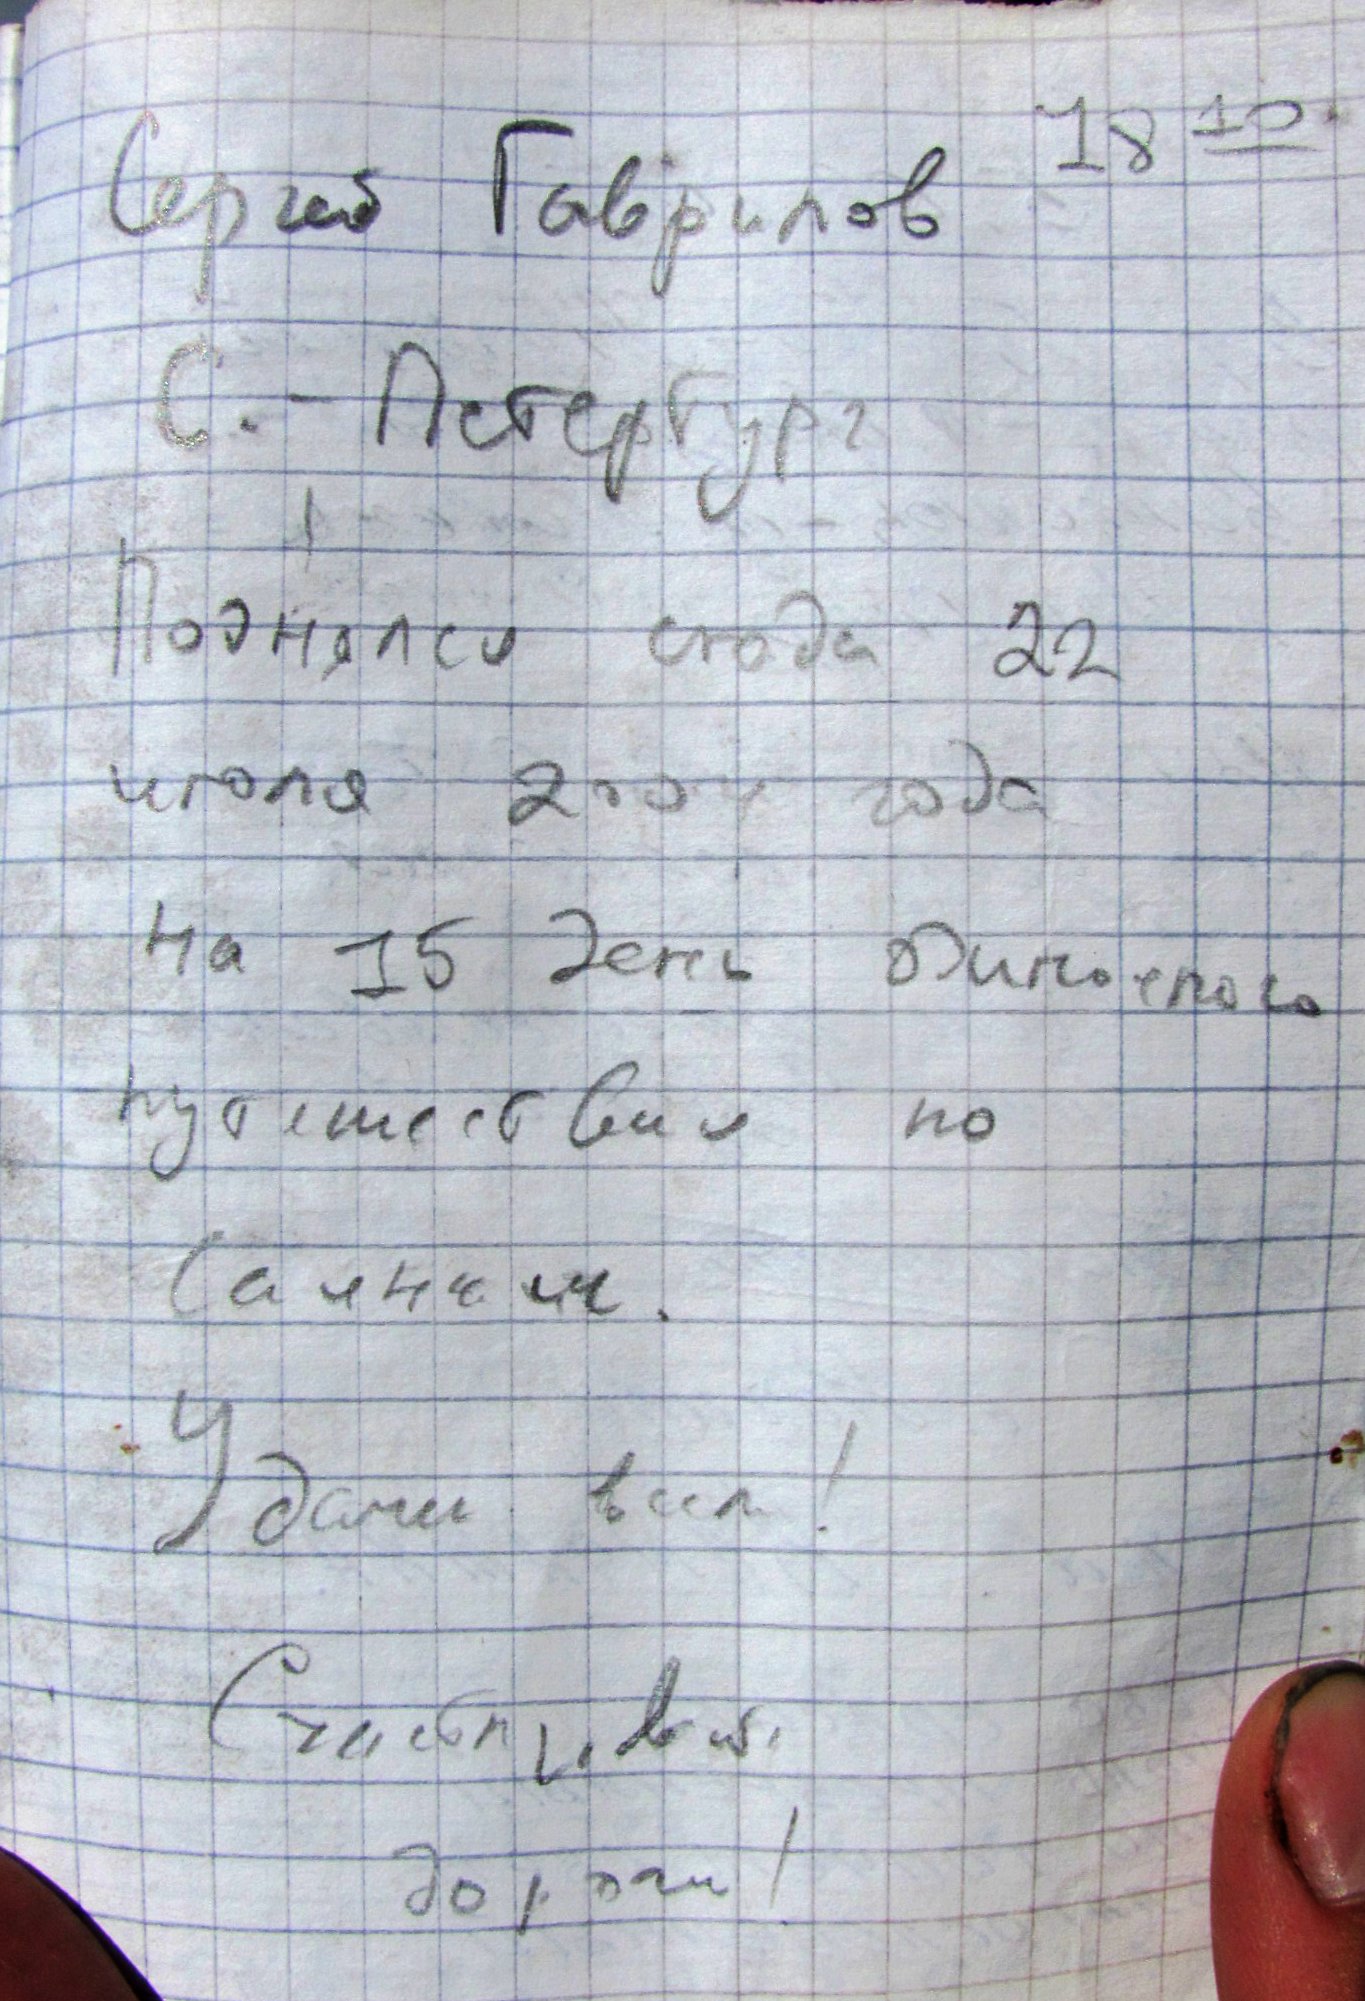 Сергей Гаврилов 18 10
С.-Петербург
Поднялся сюда 22
июля 2004 года
на 15 день одиночного
путешествия по
Саянам.
Удачи всем!
Счастливой
дороги!